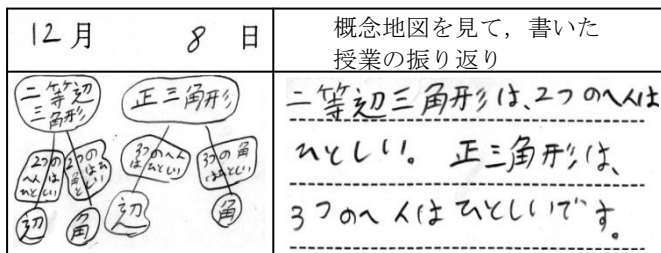 12月 8日
概念地図を見て，書いた
授業の振り返り
二等辺
三角形
正三角形
2つの
へんは
ひとしい
2つの
角は
ひとしい
3つのへん
はひとしい
3つの角
はひとしい
辺
角
辺
角
二等辺三角形は、2つのへんは
ひとしい。正三角形は、
3つのへんはひとしいです。